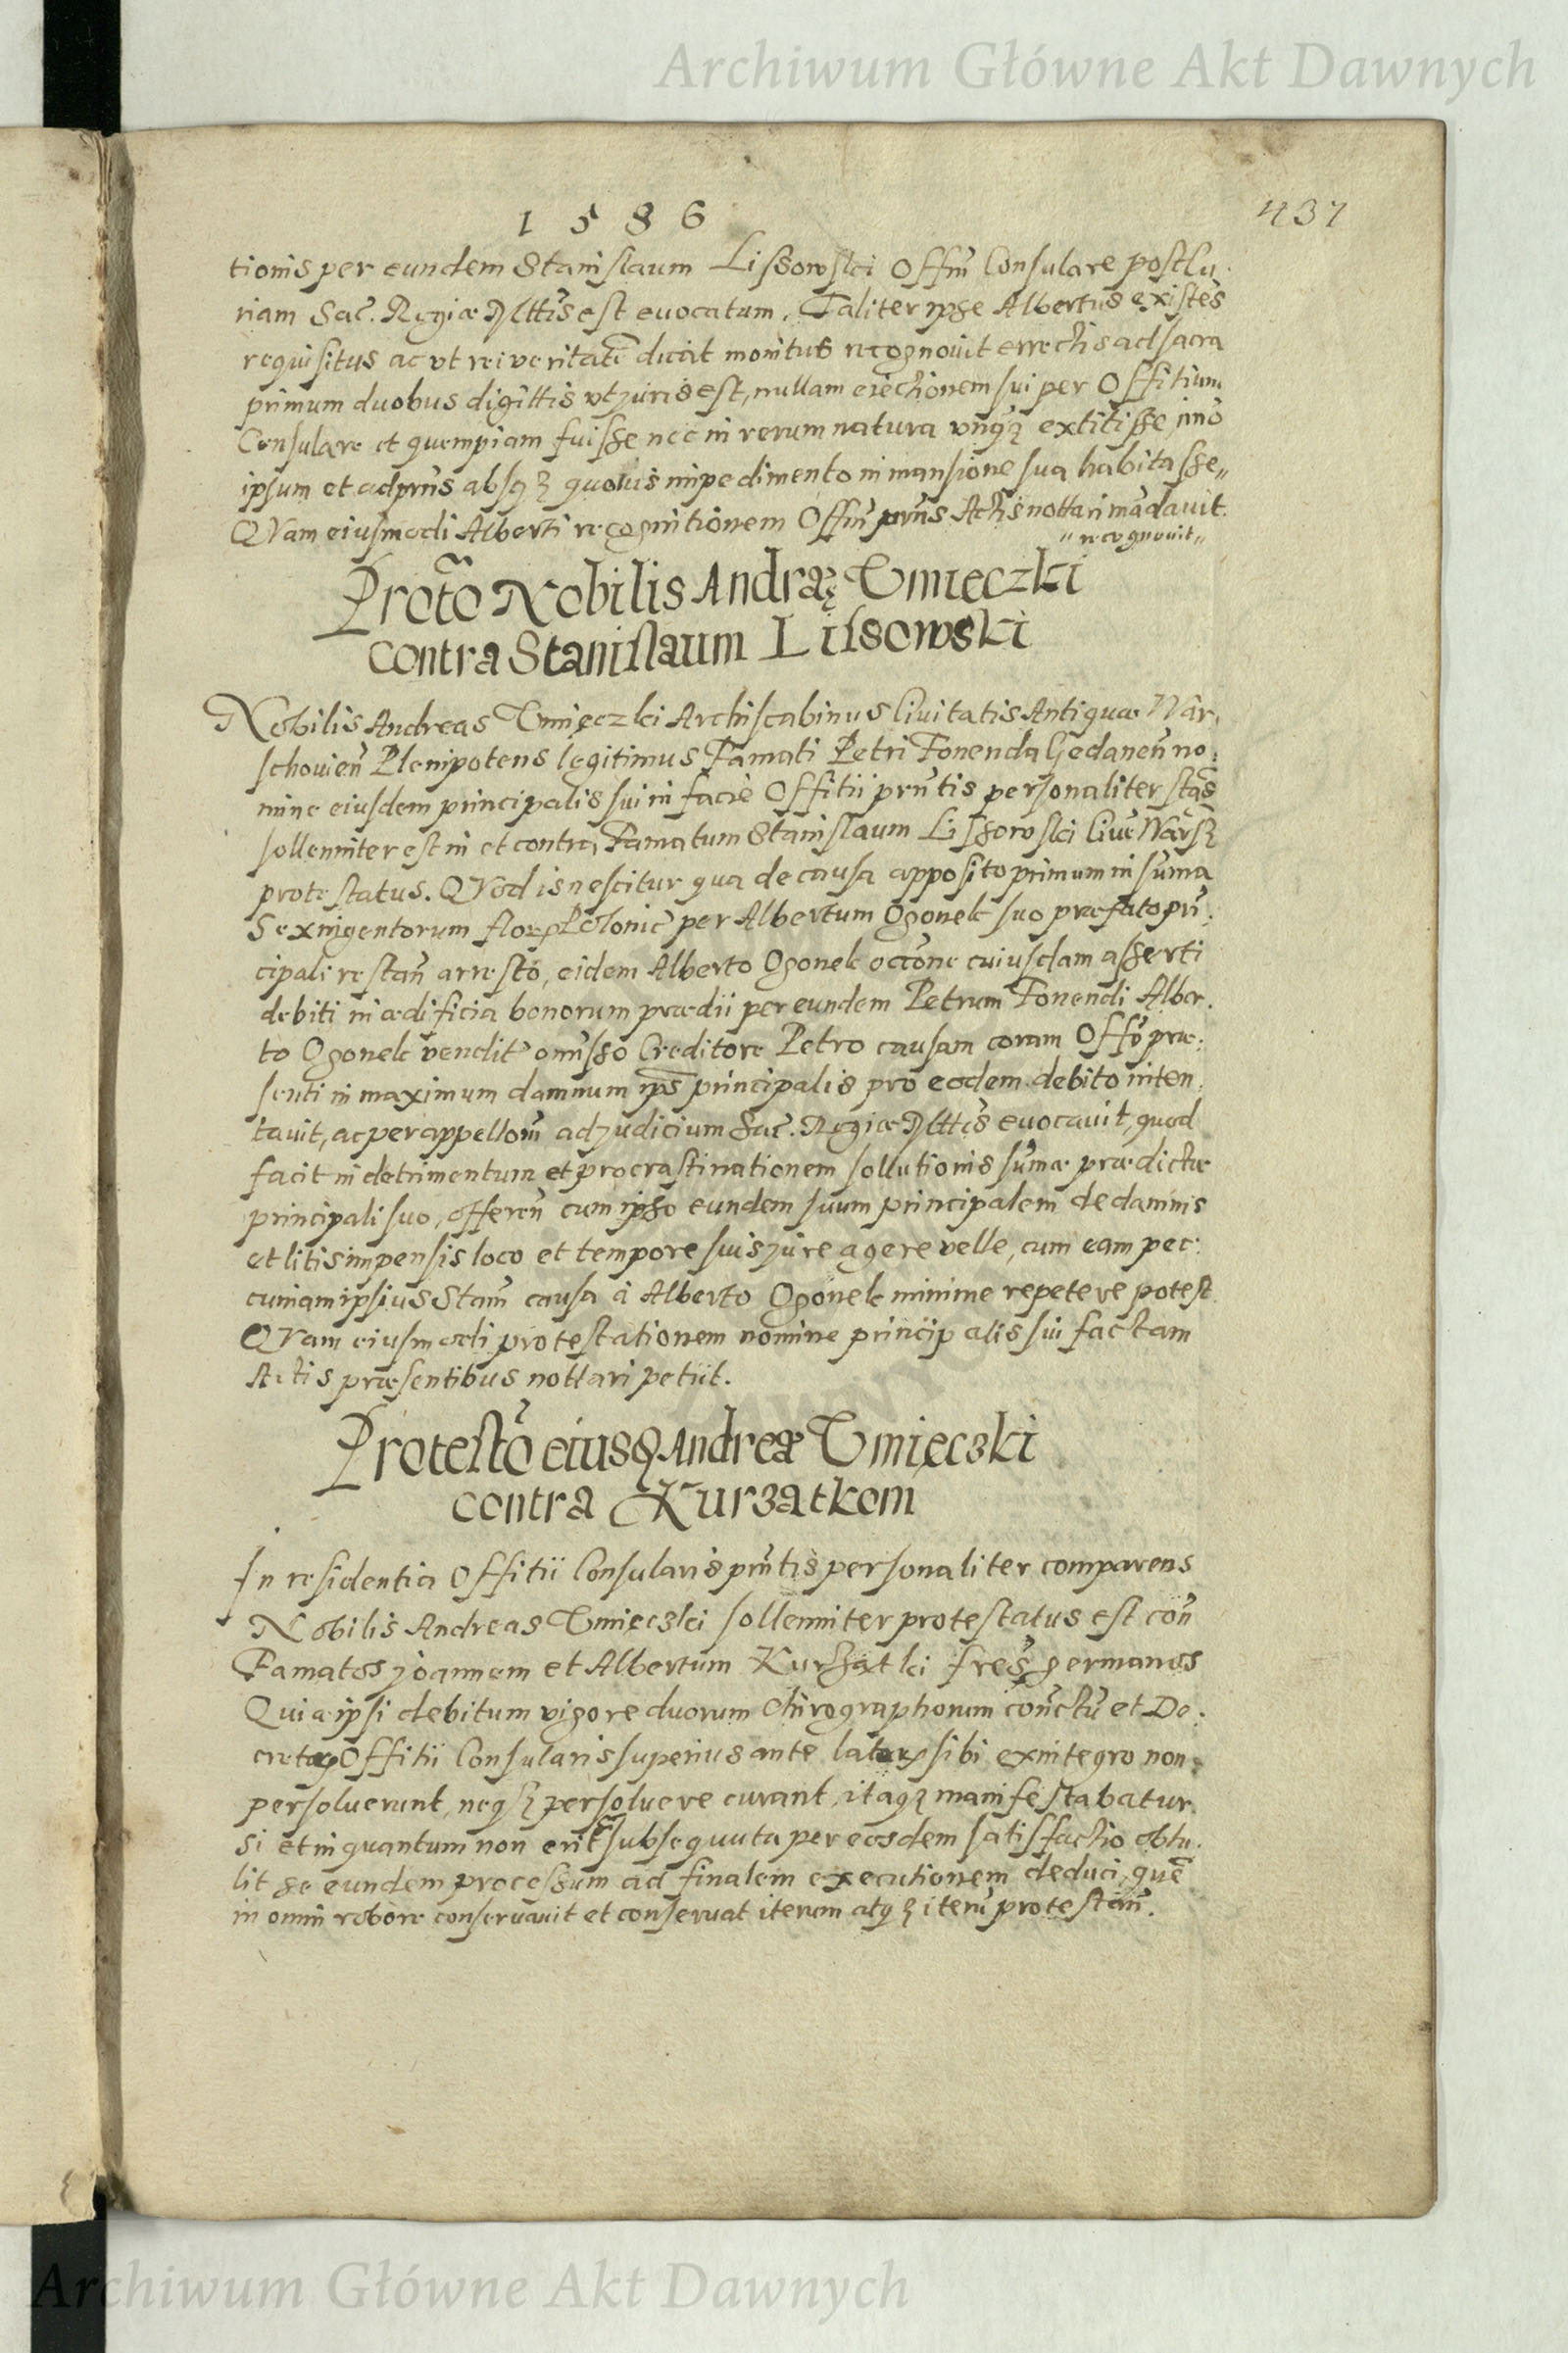 Archiwum Główne Akt Dawnych
1 5 8 6
437
tionis per eundem Stanislaum Lissowski Offm̃ Consulare post Cu,
riam Sac. Regiæ Mttis est evocatum. Taliter ipse Albertus existẽs
requisitus ac vt rei veritatẽ dicat monitus recognouit errectis ad sacra
primum duobus digittis vt juris est, nullam eiectionem sui per Offitium
Consulare et quempiam fuisse nec in rerum natura vnq̃ꝫ extitisse, imo
ipsum et adprñs absqꝫ quouis impedimento in mansione sua habitasse,,
QVam eiusmodi Alberti recognitionem Offm̃ prñs Actis nottari mãdauit.
,, recognouit,,
Protõ Nobilis Andræę Vmieczki
contra Stanislaum Lissowski
Nobilis Andreas Vmięczki Archiscabinus Ciuitatis Antiquæ War,
schouień Plenipotens legitimus Famati Petri Fonenda Gedaneñ no:
mine eiusdem principalis sui in facie Offitii prñtis personaliter stãs
sollenniter est in et contra Famatum Stanislaum Lissowski Ciuẽ Warsꝫ
protestatus. QVod is nescitur qua de causa apposito primum in sũma
Sexingentorum floꝝ Polonic̃ per Albertum Ogonek suo præfato prĩ:
cipali restañ arresto, eidem Alberto Ogonek occõne cuiusdam asserti
debiti in ædificia bonorum prædii per eundem Petrum Fonendi Alber.
to Ogonek vendit̃ omisso Creditore Petro causam coram Offõ præ:
senti in maximum damnum ips̃ principalis pro eodem debito inten,
tauit, ac per appellõm̃ ad judicium Sac. Regiæ Mttis evocauit, quod
facit in detrimentum et procrastinationem sollutionis sũmæ prædictæ
principali suo, offereñ cum ipso eundem suum principalem de damnis
et litis impensis loco et tempore suis jure agere velle, cum eam pec:
cuniam ipsius Stañ causa à Alberto Ogonek minime repetere potest
QVam eiusmodi protestationem nomine principalis sui factam
Actis præsentibus nottari petiit.
Protestõ eiusꝗ Andreæ Vmięcʒki
contra Kurʒatkom
In residentia Offitii Consularis prñtis personaliter comparens
Nobilis Andreas Vmięcʒki sollenniter protestatus est coñ
Famatos Joannem et Albertum Kurʒatki fres̃ germanos
Quia ipsi debitum vigore duorum Chirographorum conc̃tũ et De:
cretoꝝ Offitii Consularis superius ante latoꝝ sibi ex integro non:
persoluerunt, neqꝫ persoluere curant, itaqꝫ manifestabatur
si et in quantum non erit subsequuta per eosdem satisfactio obtu,
lit se eundem processum ad finalem executionem deduci, quẽ
in omni robore conseruauit et conseruat iterum atqꝫ iterũ protestañ.
Archiwum Główne Akt Dawnych